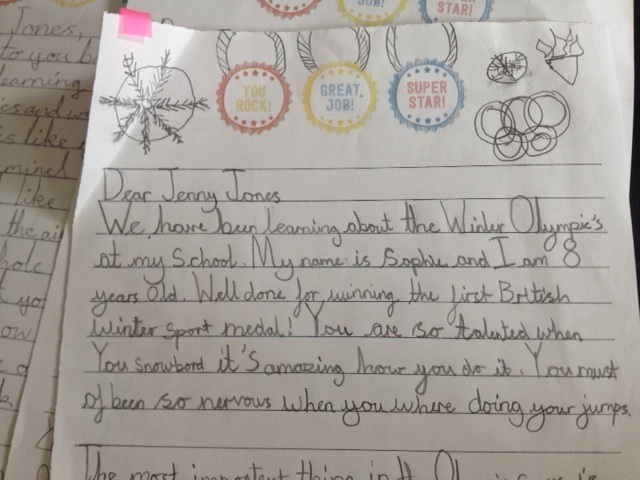 JOB!
SUPER
STAR!
YOU
ROCK!
GREAT
JOB!
SUPER
STAR!
Dear Jenny Jones
We have been learning about the Winter Olympic's
at my School. My name is Sophie and I am 8
years old. Well done for winning the first British
winter sport medal! You are so talented when
You snowbord it's amazing how you do it. You must
of been so nervous when you where doing your jumps.
The most important thing in
Jones,
to you
learning
like
the